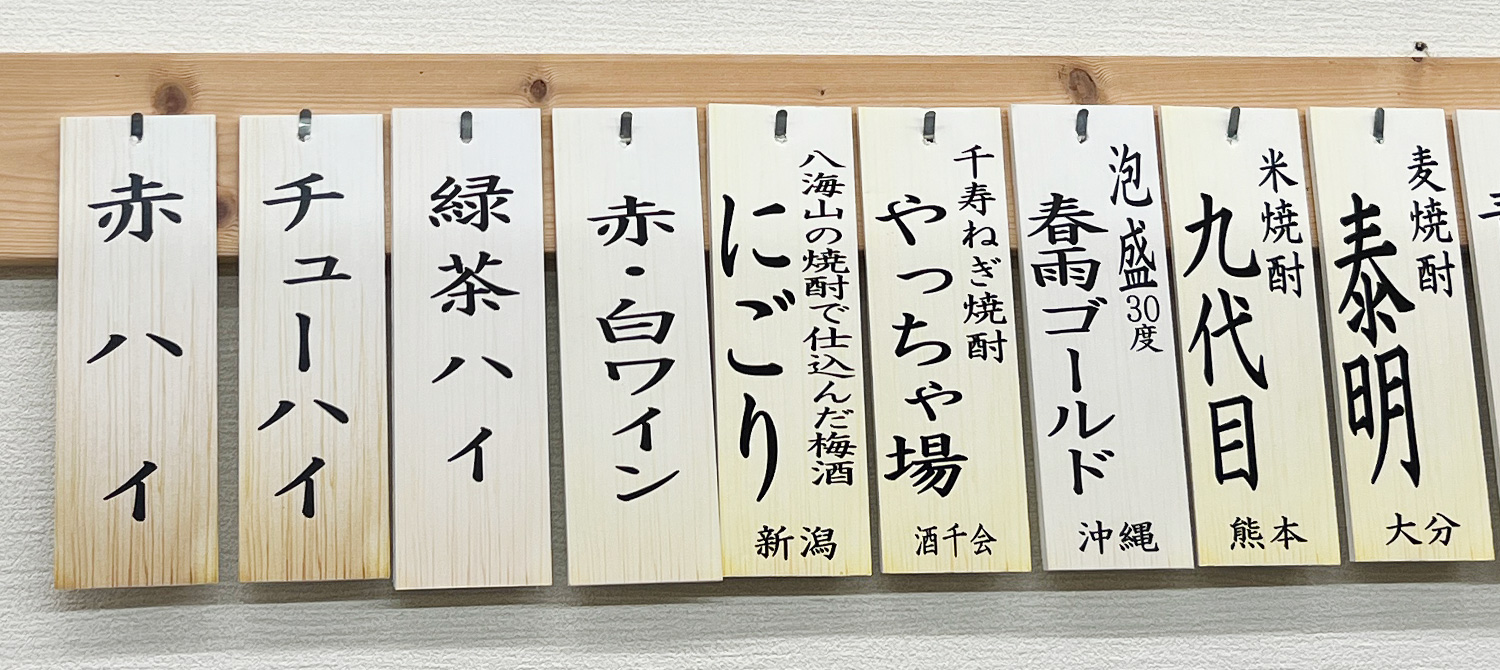 麦焼酎
泰明
大分
米焼酎
九代目
熊本
泡盛30度
春雨ゴールド
沖縄
千寿ねぎ焼酎
やっちゃ場
酒千会
八海山の焼酎で仕込んだ梅酒
にごり
新潟
赤・白ワイン
緑茶ハイ
チューハイ
赤ハイ